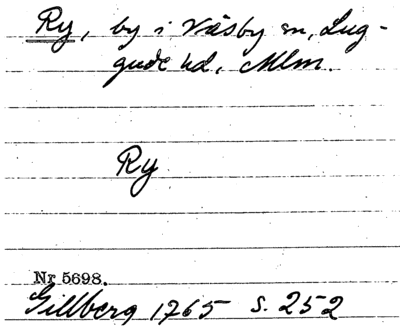 Ry, by i Väsby sn, Lug-
gude hd, Mlm.
Ry
Nr 5698.
Gillberg 1765 s. 252